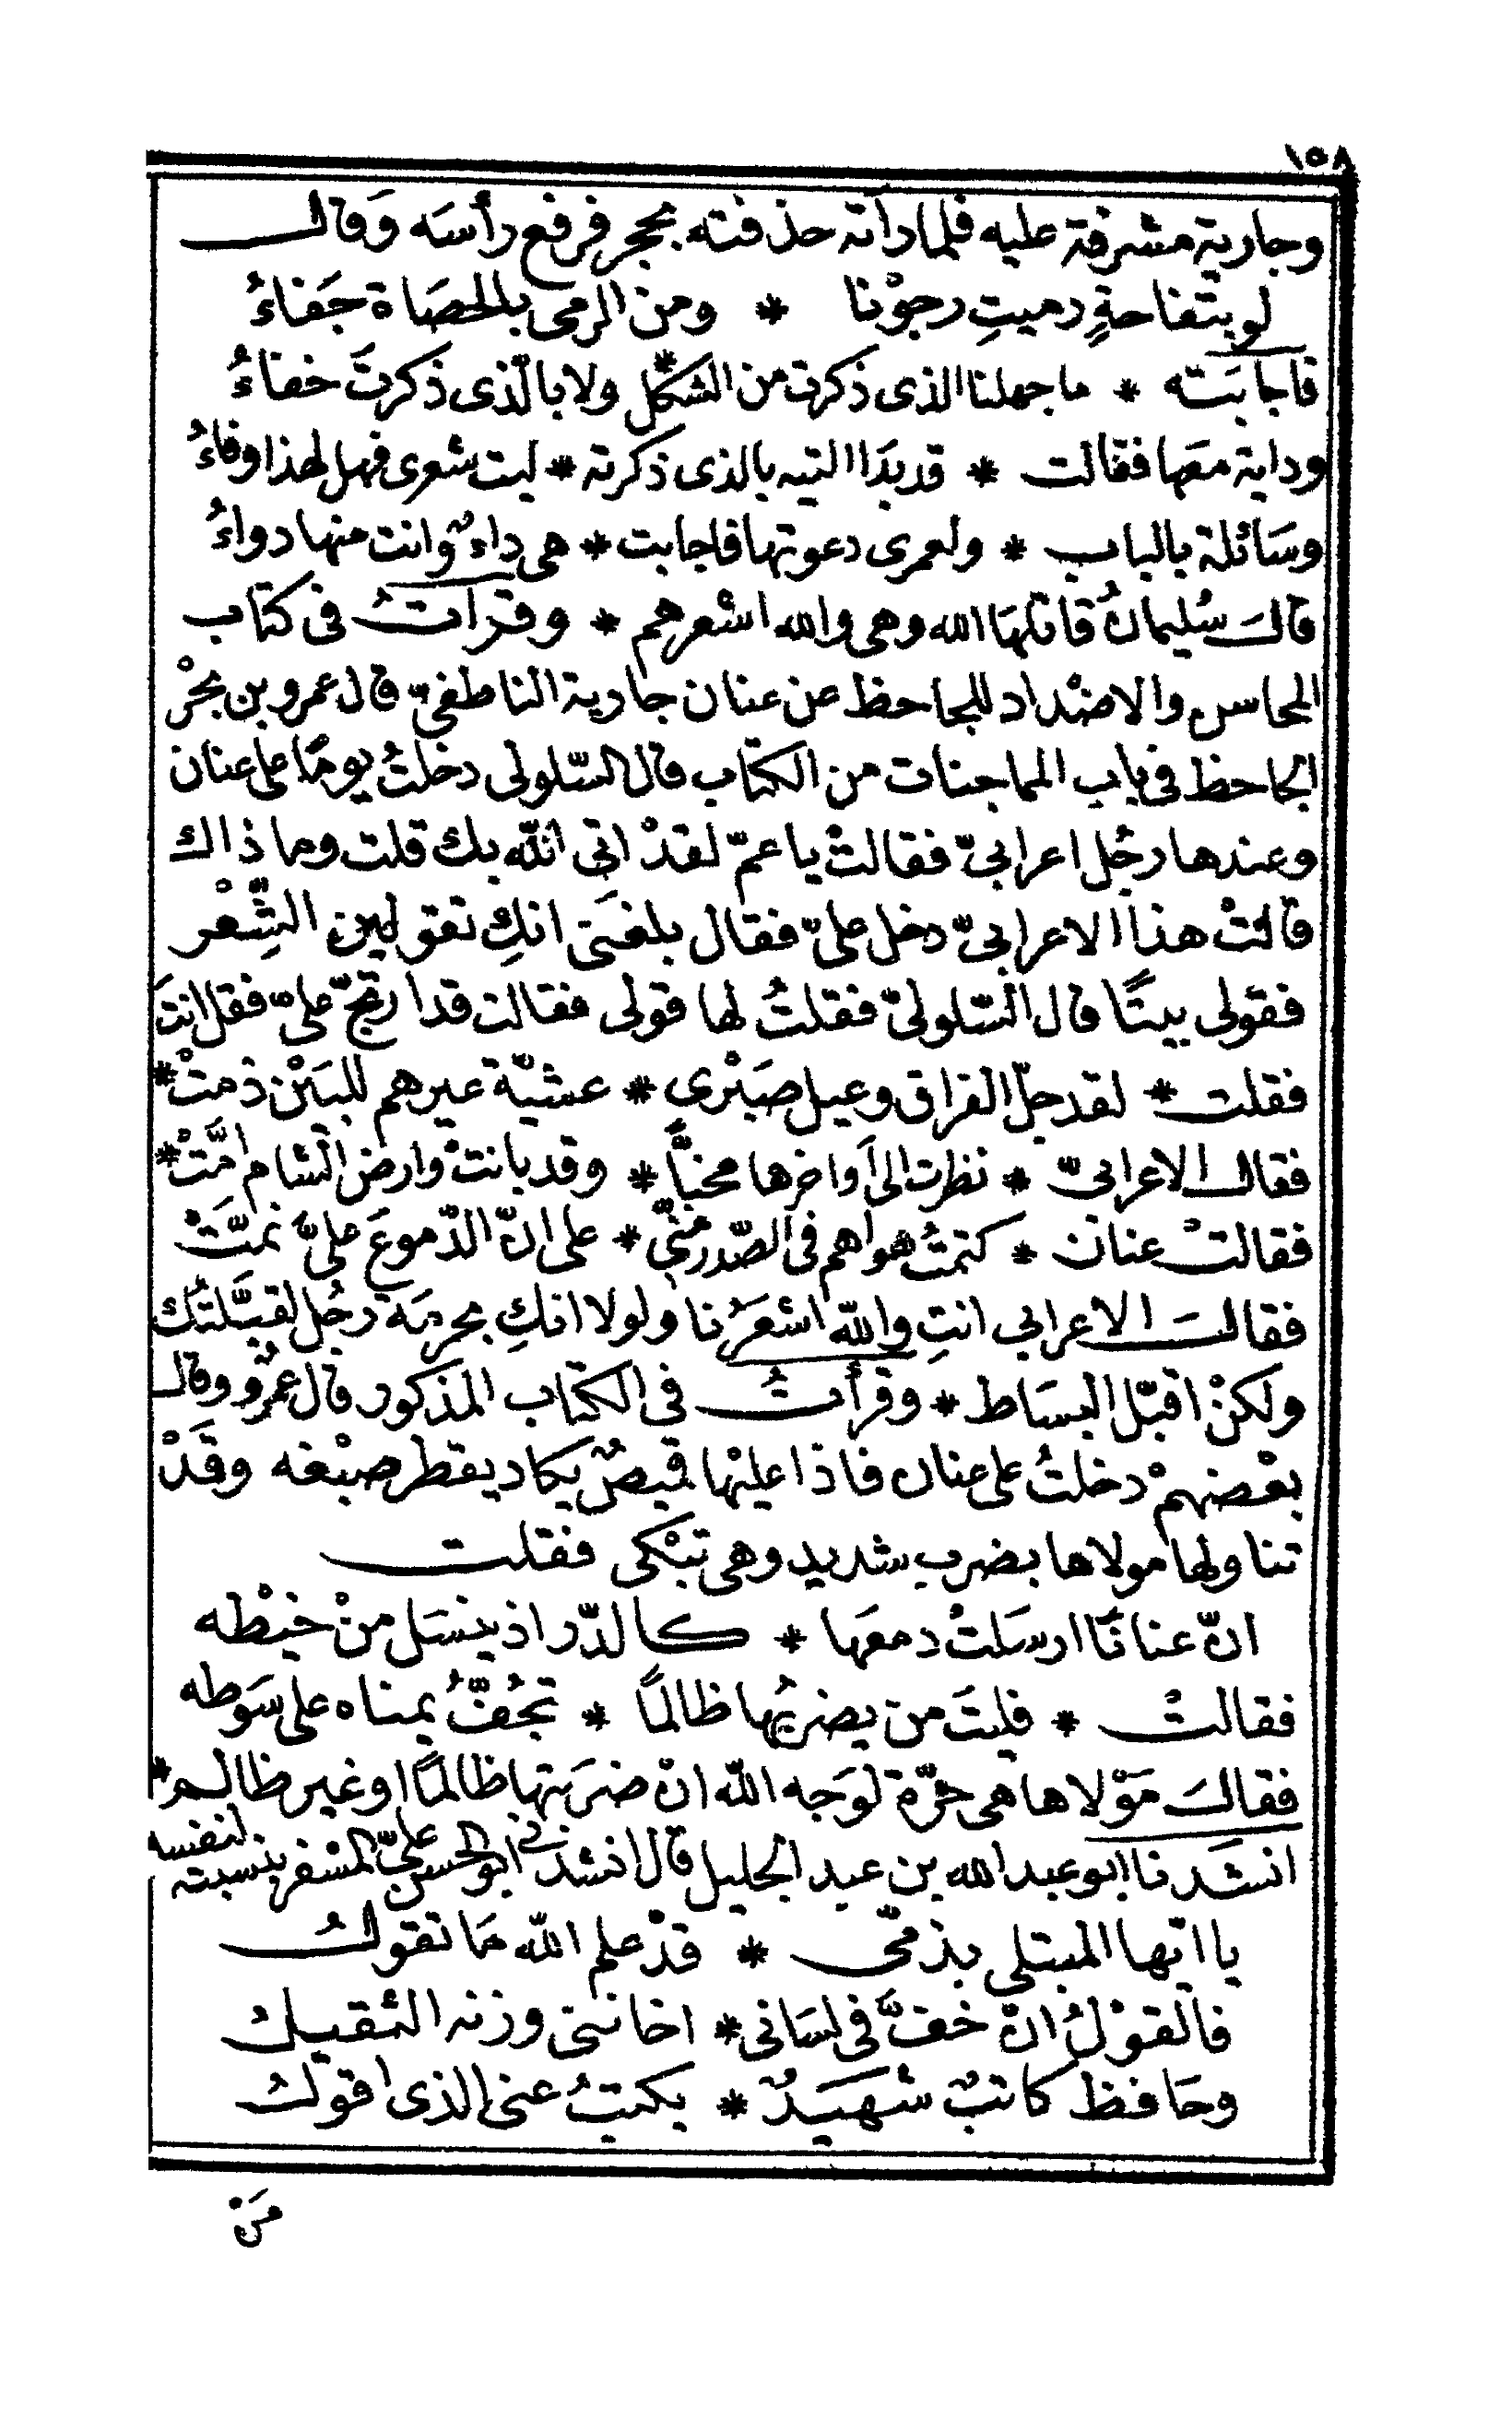 ١٥٨
وجارية مشرفة عليه فلما رأته حذفته بحجر فرفع رأسَه وَقال
لو بتفاحةٍ رميتِ رجوْنا * ومن الرمى بالحصَاة جَفاءُ
فاجابَته * ما جهلنا الذى ذكرت من الشكل * ولا بالّذى ذكرتَ خفاءُ
وداية معها فقالت * قد بدَا التيه بالذى ذكرته * ليت شعرى فهل لهذا وفاءُ
وسَائلة بالباب * ولعمرى دعوتها فاجابت * هى داءٌ وانت منها دواءُ
قالَ سُليمانُ قاتلهَا الله وهى والله اشعرهم * وقرأتُ فى كتاب
المحاسن والاضْداد للجاحظ عن عنان جارية الناطفىّ قال عمرو بن بحْر
الجاحظ فى باب الماجنات من الكتاب قال السّلولى دخلتُ يومًا على عنان
وعندها رجُل اعرابىّ فقالتْ يا عمّ لقدْ اتى الله بك قلت وما ذاك
قالتْ هذا الاعرابىّ دخل علىّ فقال بلغنى انكِ تقولين الشِّعْر
فقولى بيتًا قال السّلولىّ فقلتُ لها قولى فقالت قد ارتجّ علىّ فقل انتَ
فقلت * لقد جلّ الفراق وعيل صَبْرى * عشيّة عيرهم للبَيْن ذمتْ *
فقال الاعرابىّ * نظرت الى أواخرها مخبّأً * وقد بانتْ وارض الشام امَّتْ *
فقالتْ عنان * كتمتُ هواهم فى الصّدر منّى * على انّ الدّموعَ علىَّ نمَّتْ
فقالَ الاعرابى انتِ والله اشعَرُنا ولولا انكِ بحرمَة رجُل لقبَّلتُك
ولكنْ اقبّل البسَاط * وقرأتُ فى الكتاب المذكور قال عمْرٌو وقال
بعْضهمْ دخلتُ على عنان فاذا عليْها قميصٌ يكاد يقطر صبْغه وقَدْ
تناولها مولاها بضرب شديد وهى تبْكى فقلت
انّ عنانًا ارسَلتْ دمعَها * كالدّر اذ ينسَل منْ خيْطه
فقالتْ * فليتَ من يضربُها ظالمًا * تجُفُّ يمناه على سَوطه
فقالَ مَوْلاها هى حرّة لوَجه الله انْ ضرَبتها ظالمًا او غير ظالم *
انشَدنا ابو عبد الله بن عبد الجليل قال انشدنى ابو الحسن علىّ المسفر بنسبته لنفسه
يا ايّها المبتلى بذمّى * قدْ علم الله مَا تقولُ
فالقوْلُ انْ خفَّ فى لسَانى * اخاننى وزنه الثقيل
وحَافظ كاتبٌ شهَيدٌ * يكتبُ عنى الذى اقولُ
مَنْ